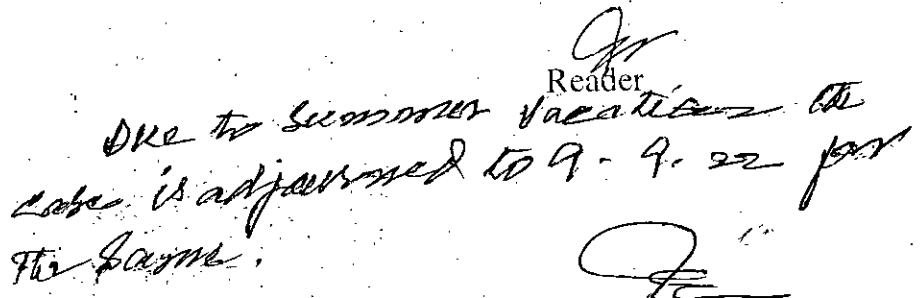 Reader
Due to Summer Vacation the
case is adjourned to 9-9-22 for
the Same.